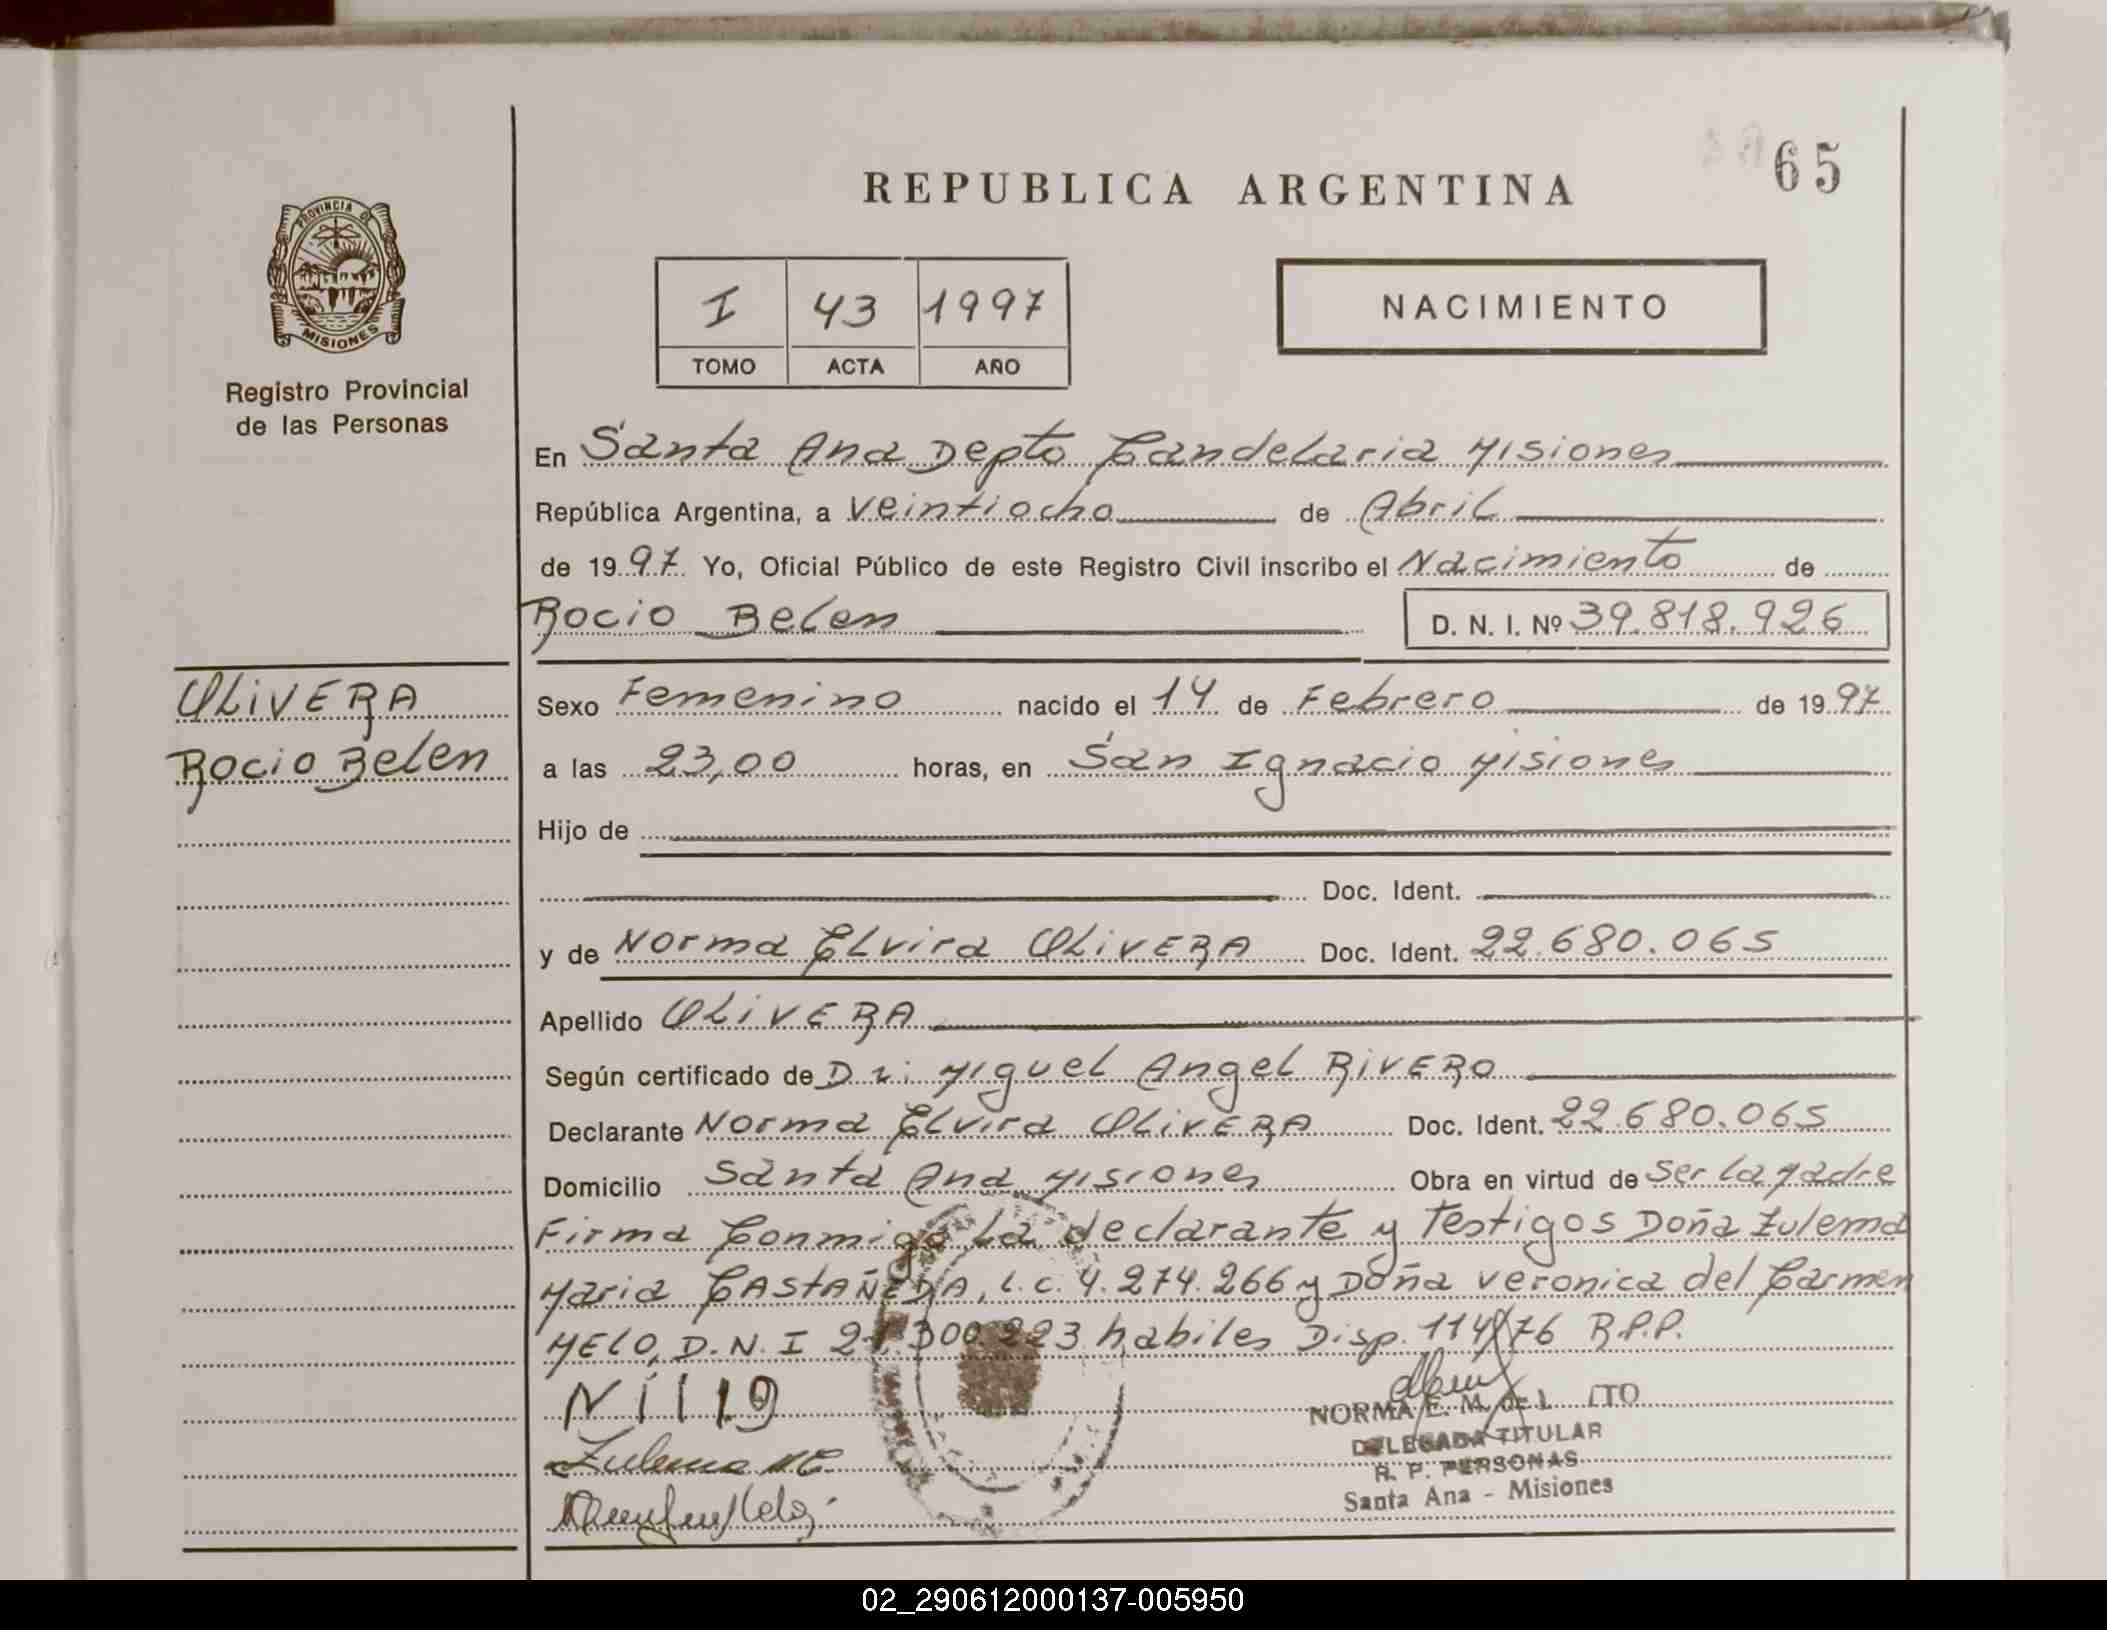 65
REPUBLICA ARGENTINA
PROVINCIA DE
MISIONES
I 43 1997
TOMO ACTA AÑO
NACIMIENTO
Registro Provincial
de las Personas
En Santa Ana Depto Candelaria Misiones
República Argentina, a veintiocho de Abril
de 1997 Yo, Oficial Público de este Registro Civil inscribo el Nacimiento de
Rocio Belen D. N. I. Nº 39.818.926
OLIVERA
Rocio Belen
Sexo Femenino nacido el 14 de Febrero de 1997
a las 23,00 horas, en San Ignacio Misiones
Hijo de
Doc. Ident.
y de Norma Elvira OLIVERA Doc. Ident. 22.680.065
Apellido OLIVERA
Según certificado de Dr: Miguel Angel RIVERO
Declarante Norma Elvira OLIVERA Doc. Ident. 22.680.065
Domicilio Santa Ana Misiones Obra en virtud de ser la Madre
Firma Conmigo la declarante y Testigos Doña Zulema
Maria CASTAÑEDA, L.C. 4.274.266 y Doña Veronica del Carmen
MELO, D.N.I 21.300.223 habiles Disp. 114/76 R.P.P.
Zulema
NORMA E. M.
DELEGADA TITULAR
R. P. PERSONAS
Santa Ana - Misiones
02_290612000137-005950